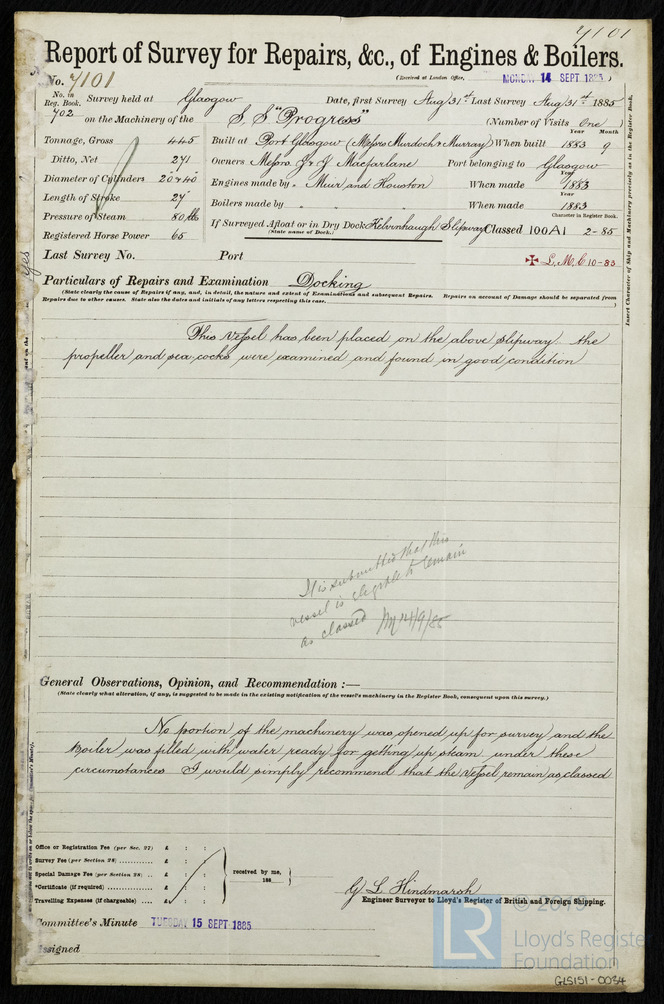 7101
Report of Survey for Repairs, &c., of Engines & Boilers.
No. 7101 (Received at London Office, MONDAY 14 SEPT. 1885)
No. in Reg. Book. 702 Survey held at Glasgow Date, first Survey Aug 31st Last Survey Aug 31st 1885
on the Machinery of the S.S "Progress" (Number of Visits One)
Tonnage, Gross 445 Built at Port Glasgow (Messrs Murdoch & Murray) When built Year 1883 Month 9
Ditto, Net 271 Owners Messrs J & J Macfarlane Port belonging to Glasgow
Diameter of Cylinders 20 & 40 Engines made by Muir and Houston When made Year 1883
Length of Stroke 27 Boilers made by " When made Year 1883
Pressure of Steam 80 lbs If Surveyed Afloat or in Dry Dock Kelvinhaugh Slipway Classed 100A1 2-85
(State name of Dock.) Character in Register Book.
Registered Horse Power 65
Last Survey No. Port L.M.C 10-83
Particulars of Repairs and Examination Docking
(State clearly the cause of Repairs if any, and, in detail, the nature and extent of Examinations and subsequent Repairs. Repairs on account of Damage should be separated from
Repairs due to other causes. State also the dates and initials of any letters respecting this case. )
This vessel has been placed on the above slipway the
propeller and sea cocks were examined and found in good condition
It is submitted that this
vessel is eligible to remain
as classed 14/9/85
General Observations, Opinion, and Recommendation :—
(State clearly what alteration, if any, is suggested to be made in the existing notification of the vessel's machinery in the Register Book, consequent upon this survey.)
No portion of the machinery was opened up for survey and the
Boiler was filled with water ready for getting up steam under these
circumstances I would simply recommend that the vessel remain as classed
Office or Registration Fee (per Sec. 27) £ : :
Survey Fee (per Section 28) £ : :
Special Damage Fee (per Section 28) £ : : received by me,
*Certificate (if required) £ : : 188
Travelling Expenses (if chargeable) £ : :
G L Hindmarsh
Engineer Surveyor to Lloyd's Register of British and Foreign Shipping.
Committee's Minute TUESDAY 15 SEPT 1885
Assigned
Insert Character of Ship and Machinery precisely as in the Register Book.
LR
Lloyd's Register
Foundation
GLS151-0034